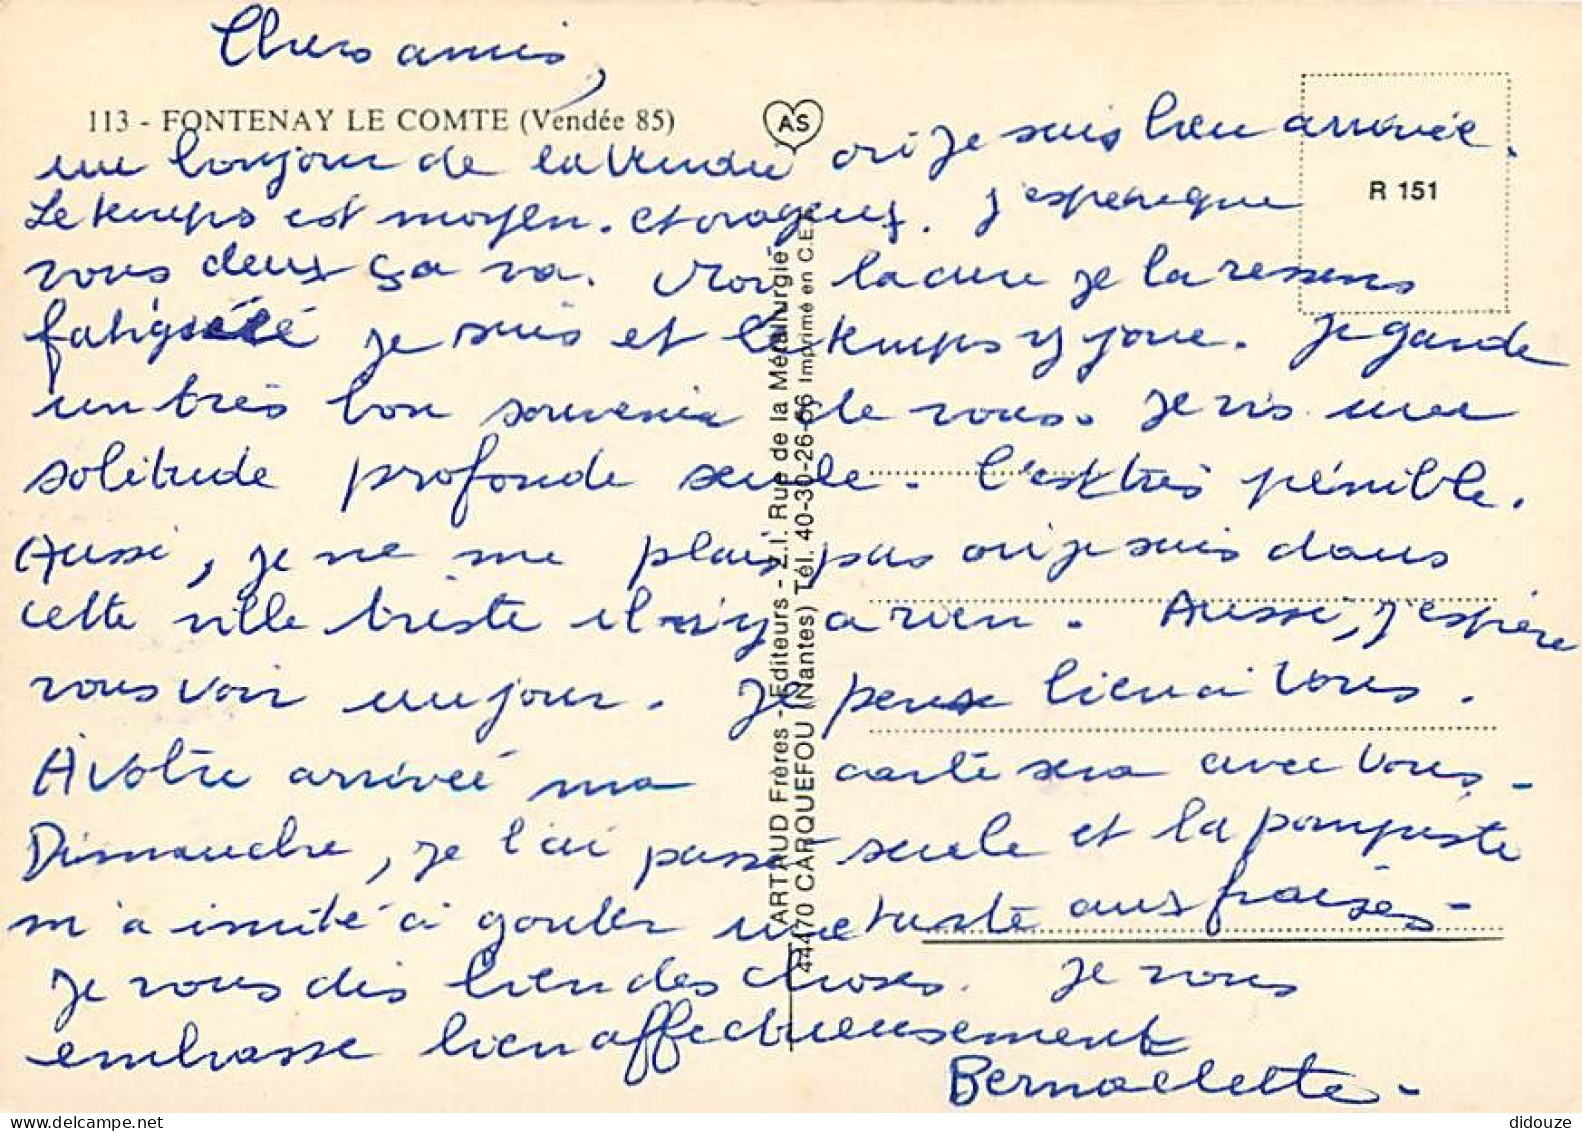 Chers amis,
113 - FONTENAY LE COMTE (Vendée 85)
AS
R 151
un bonjour de la Vendée où je suis bien arrivée.
Le temps est moyen. et orageux. J'espère que
vous deux ça va. Moi la cure je la ressens
fatiguée je suis et le temps y joue. Je garde
un très bon souvenir de vous. Je vis une
solitude profonde seule. C'est très pénible.
Aussi, je ne me plais pas où je suis dans
cette ville triste il n'y a rien. Aussi, j'espère
vous voir un jour. Je pense bien à vous.
A votre arrivée ma carte sera avec vous -
Dimanche, je l'ai passé seule et la pompiste
m'a invité à goûter une tarte aux fraises -
Je vous dis bien des choses. Je vous
embrasse bien affectueusement
Bernadette -
ARTAUD Frères - Editeurs - Z.I. Rue de la Métallurgie
44470 CARQUEFOU (Nantes) Tél. 40-30-26-66 Imprimé en C.E.E.
didouze